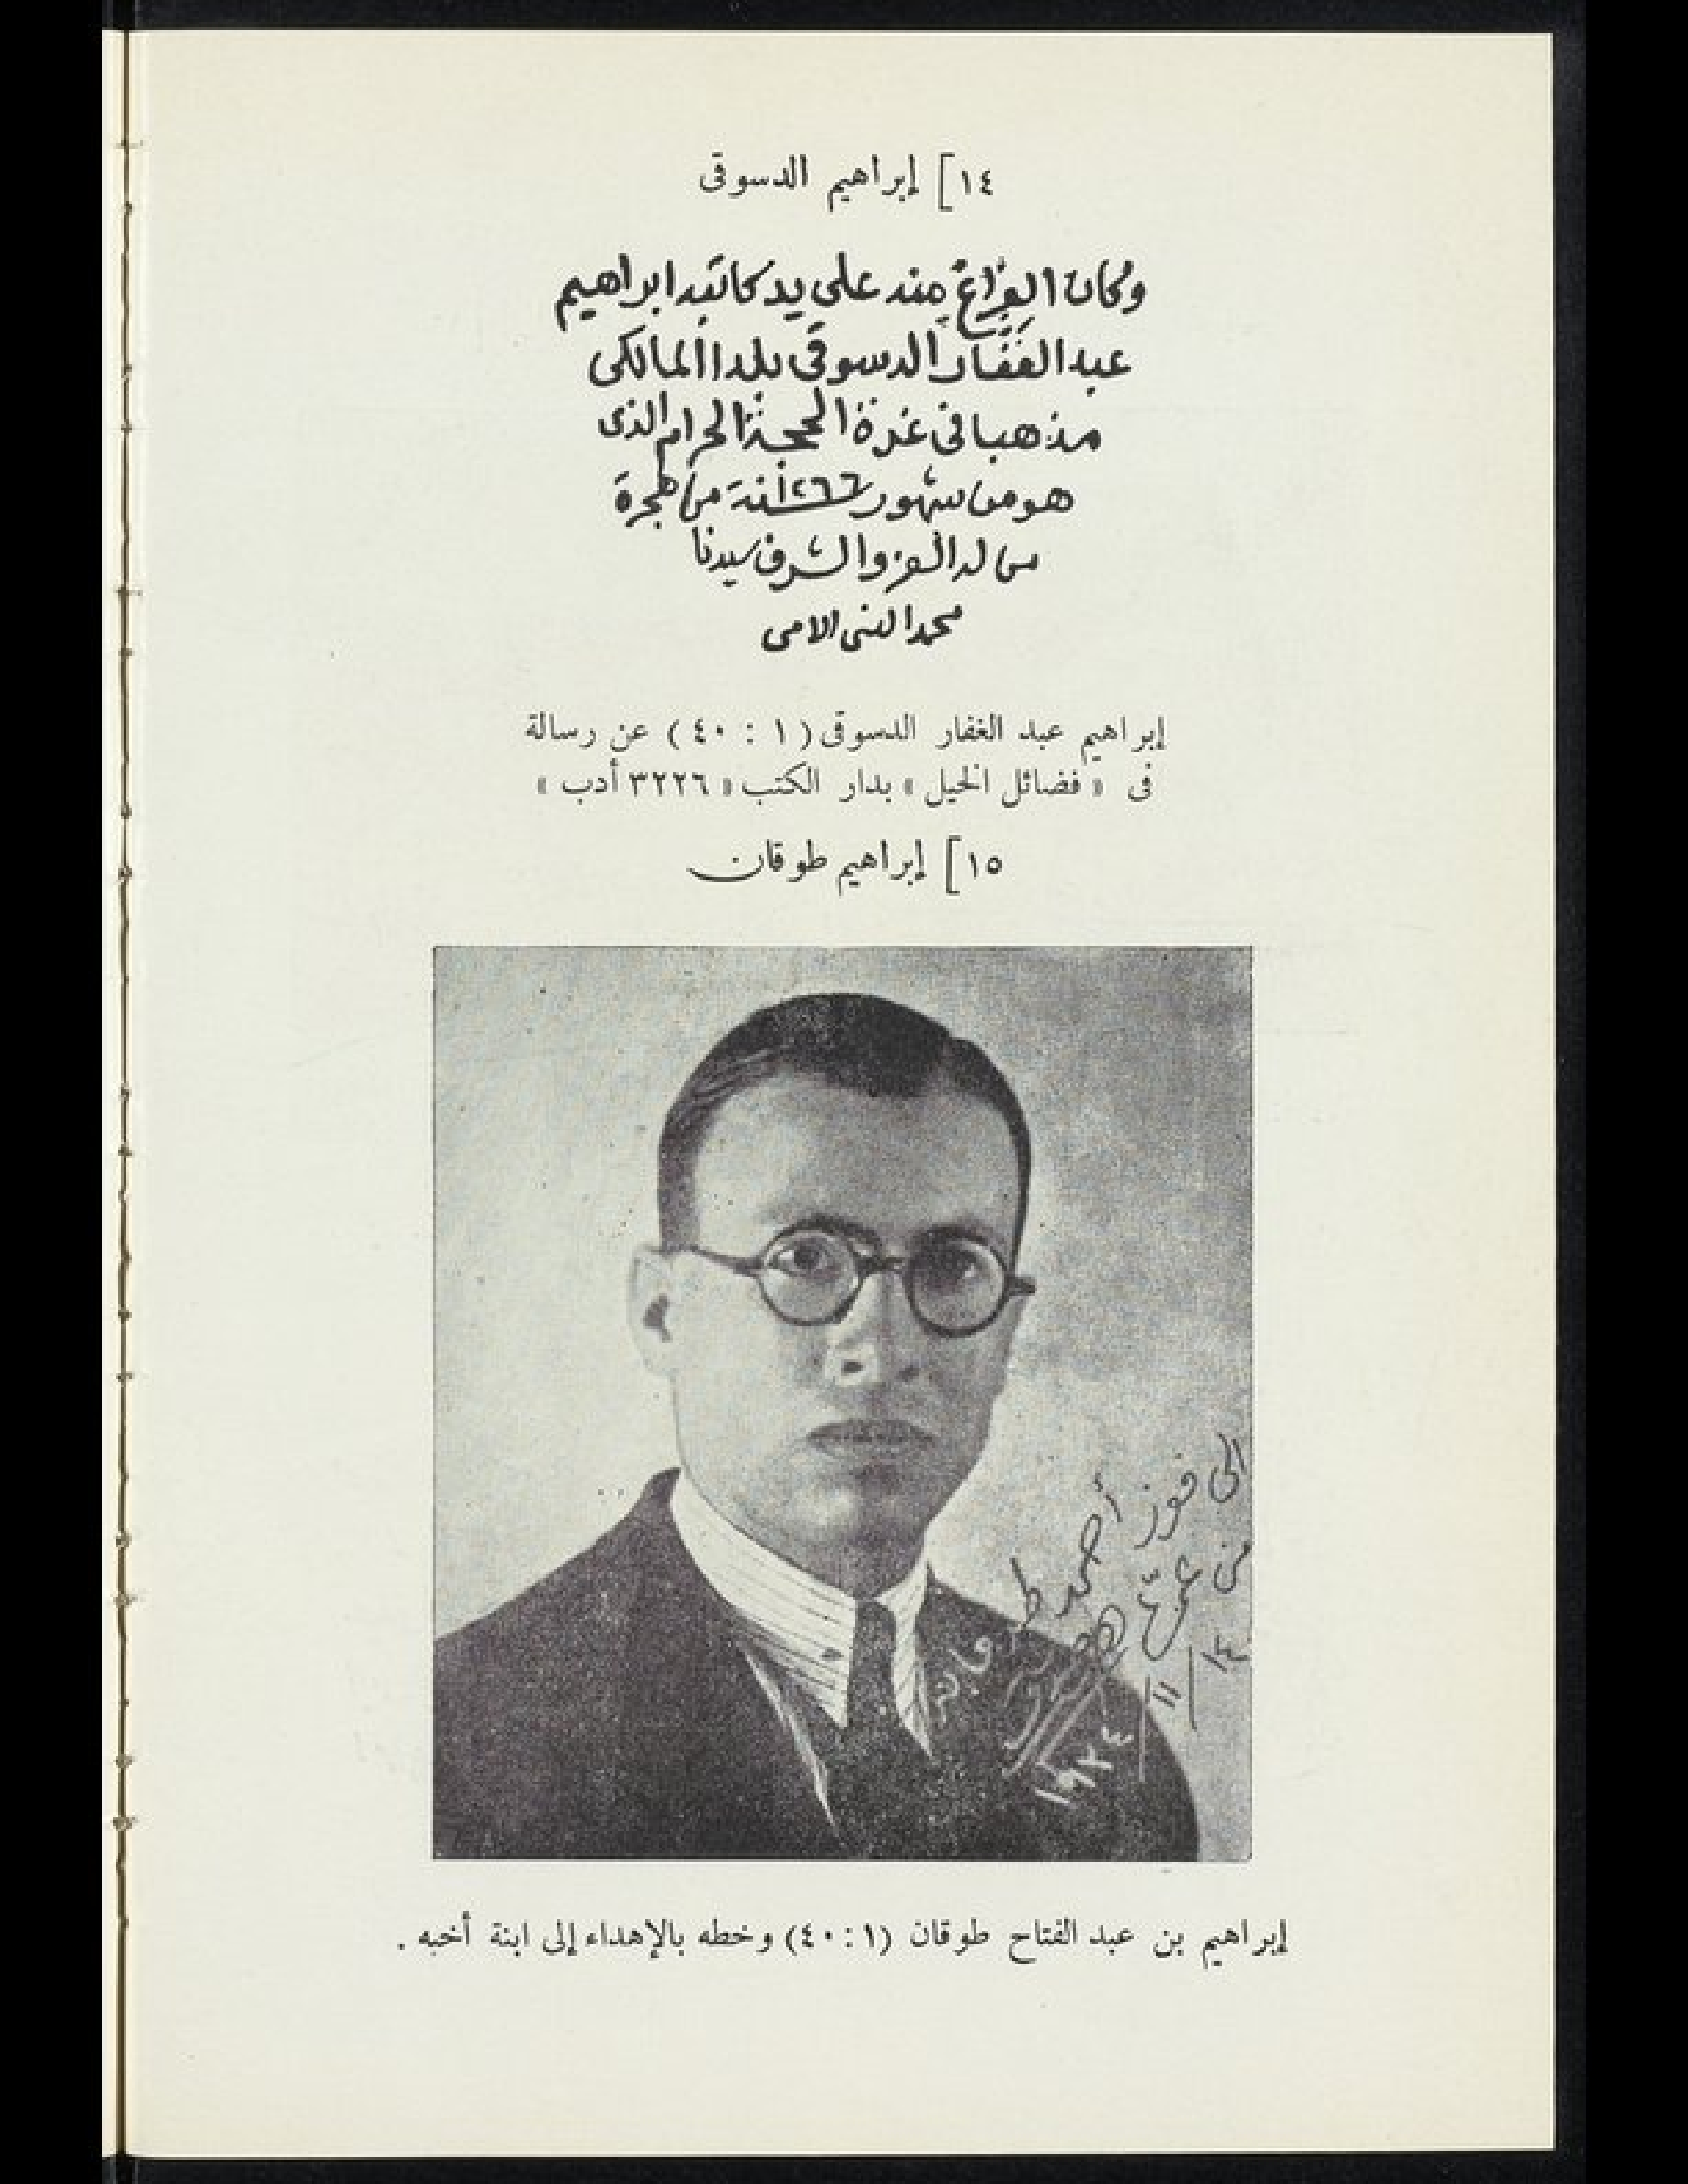 ١٤] إبراهيم الدسوقى
وكان الفراغ منه على يد كاتبه ابراهيم
عبد الغفار الدسوقى بلدا المالكى
مذهبا فى غرة الحجة الحرام الذى
هو من شهور ١٢٦٦ سنة من هجرة
من له العز والشرف سيدنا
محمد النبى الامى
إبراهيم عبد الغفار الدسوقى (١ : ٤٠) عن رسالة
فى « فضائل الخيل » بدار الكتب « ٣٢٢٦ أدب »
١٥] إبراهيم طوقان
الى فوز أحمد طوقان
من عمها
١٤/١١/١٩٣٤
إبراهيم بن عبد الفتاح طوقان (١ : ٤٠) وخطه بالإهداء إلى ابنة أخيه .